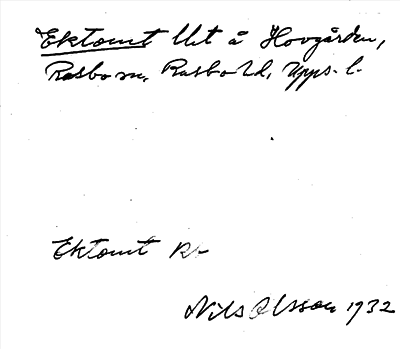 Ektomt Ut å Hovgården,
Rasbo sn, Rasbo hd, Upps. l.
Ektomt
Nils Olsson 1932